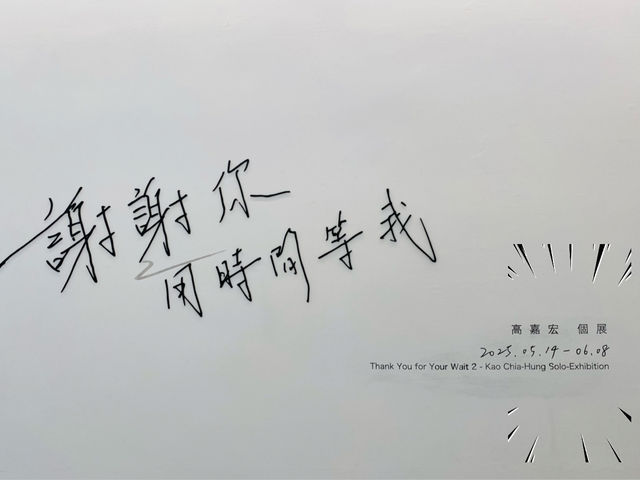 謝謝你
2
用時間等我
高嘉宏 個展
2025.05.14-06.08
Thank You for Your Wait 2 - Kao Chia-Hung Solo-Exhibition